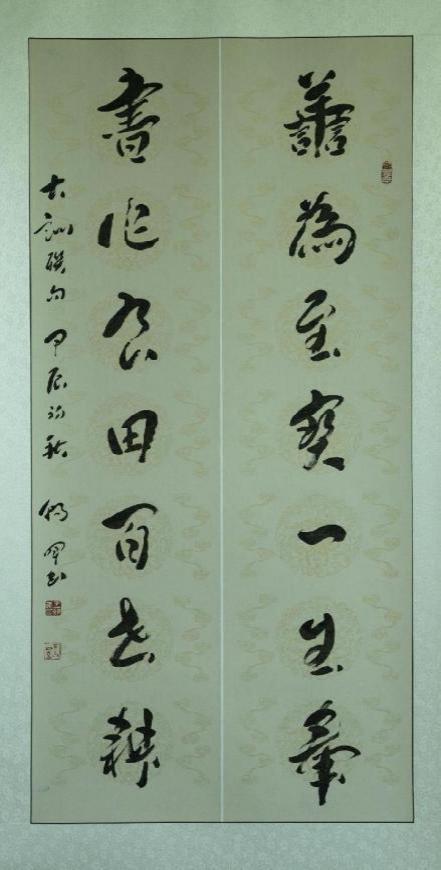 譱為至寶一生
書作良田百世耕
古訓聯句 甲辰初秋